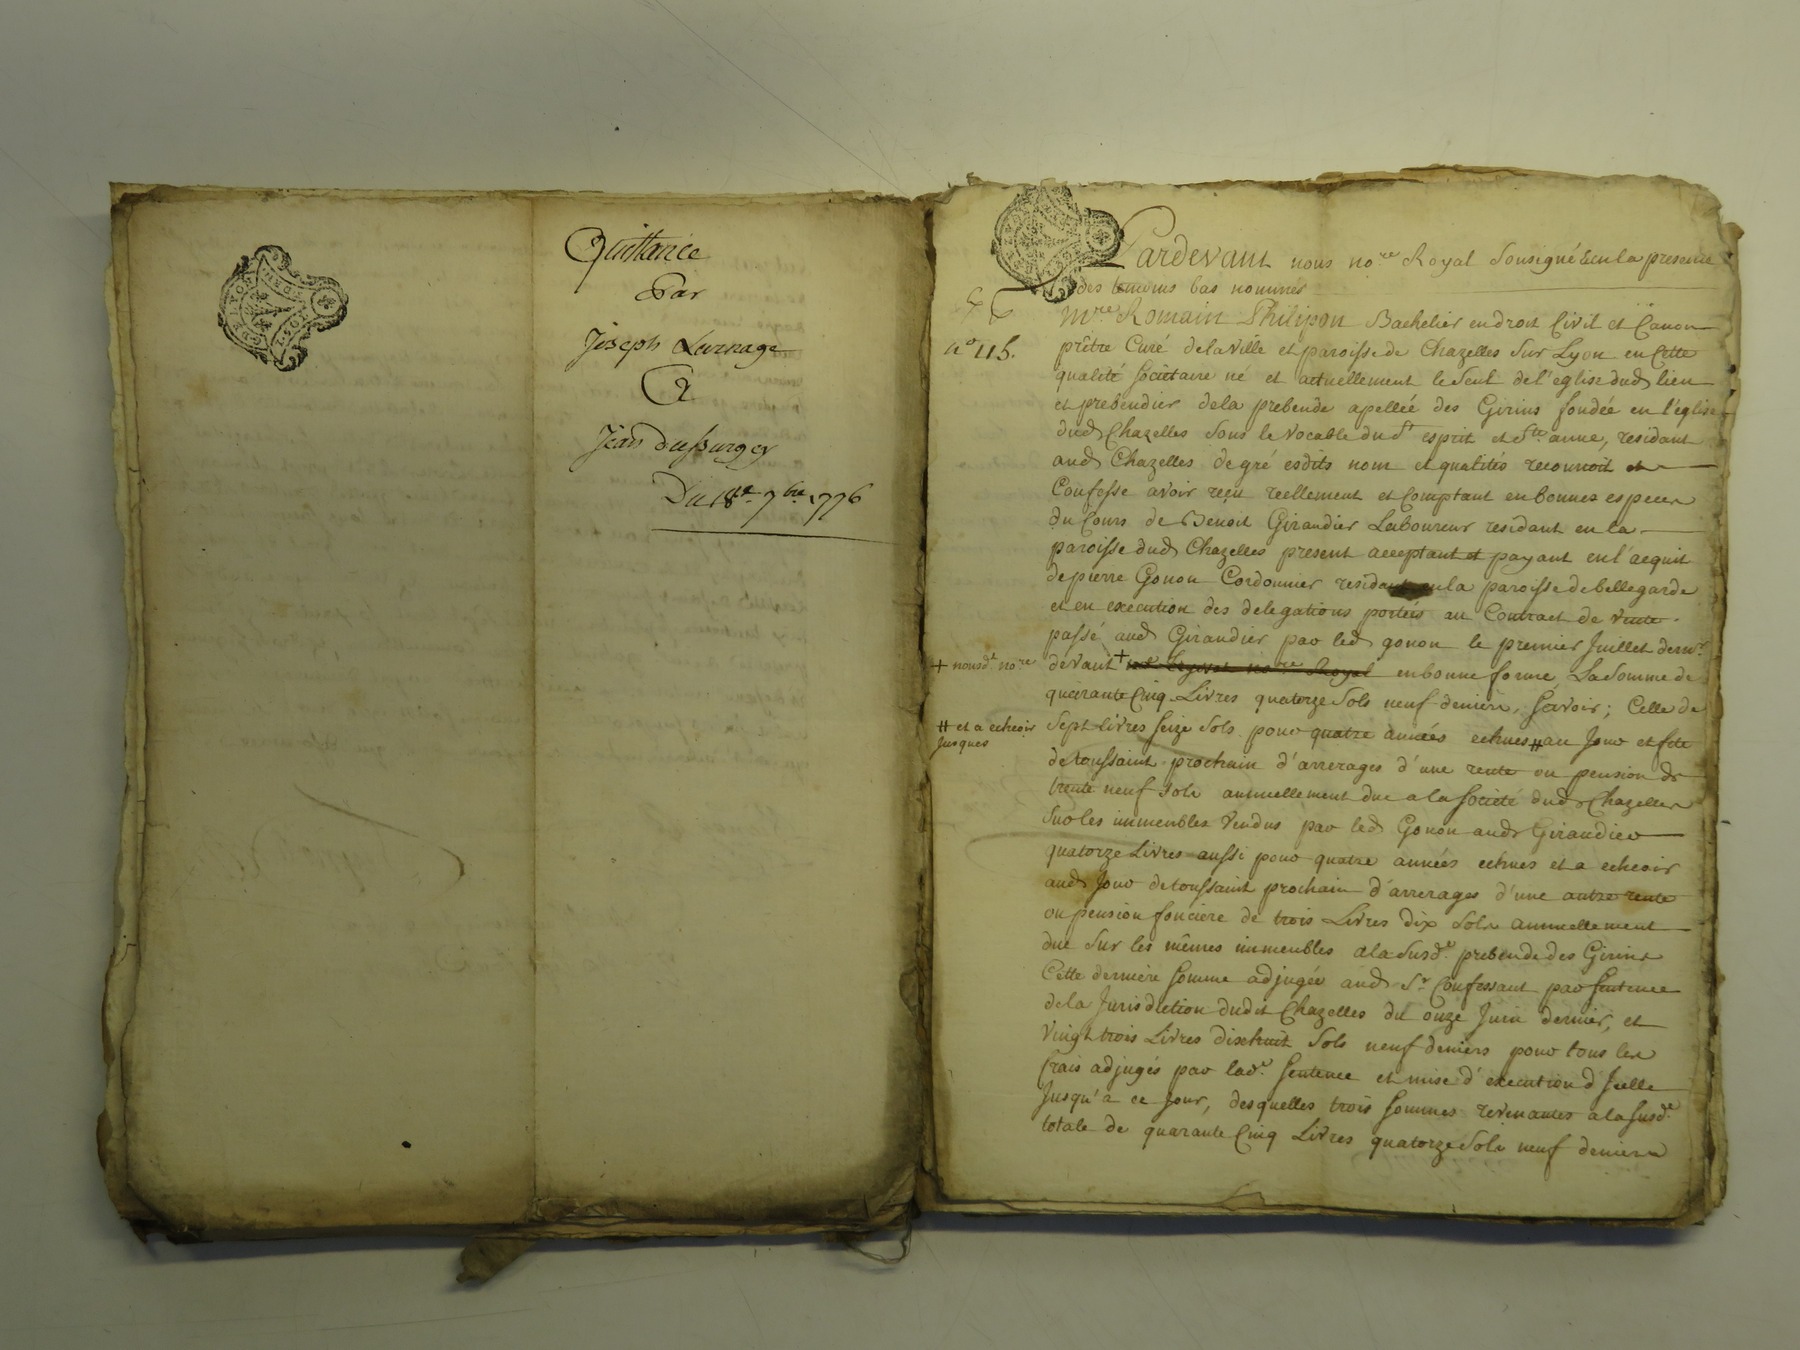 Quittance
Par
Joseph
A
Jean
Du 18e 7bre 1776
Pardevant nous nore Royal Sousigné & en la presence
des temoins bas nommés
Mre Romain Philipon Bachelier en droit Civil et Canon
no 115.
prêtre Curé de la ville et paroisse de Chazelles Sur Lyon en Cette
qualité Sociétaire né et actuellement le Seul de l'eglise dud lieu
et prebendier de la prebende apellée des Girins fondée en l'église
dud Chazelles Sous le Vocable du St esprit et Ste anne, residant
aud Chazelles de gré esdits nom et qualités reconnoit et
Confesse avoir reçu reellement et Comptant en bonnes especes
du Cours de Benoit Girandier Laboureur residant en la
paroisse dud Chazelles present acceptant et payant en l'acquit
de pierre Gonon Cordonnier residant en la paroisse de bellegarde
et en execution des delegations portées au Contract de vente
passé aud Girandier par led gonon le premier Juillet dernr
+ nousdt nore
devant + nore Royal en bonne forme, La Somme de
quarante Cinq Livres quatorze Sols neuf deniers, Savoir; Celle de
# et a echeoir
Jusques
Sept livres Seize Sols pour quatre années echues # au Jour et fete
de toussaint prochain d'arrerages d'une rente ou pension de
trente neuf sols annuellement due a la Société dud Chazelles
Sur les immeubles Vendus par led Gonon aud Girandier
quatorze Livres aussi pour quatre années echues et a echeoir
aud Jour de toussaint prochain d'arrerages d'une autre rente
ou pension fonciere de trois Livres dix Sols annuellement
due Sur les mêmes immeubles a la Susde. prebende des Girins
Cette derniere Somme adjugée aud Sr Confessant par Sentence
de la Jurisdiction dudit Chazelles du onze Juin dernier, et
Vingt trois Livres dixhuit Sols neuf deniers pour tous les
frais adjugés par lade. Sentence et mise d'execution d'Icelle
Jusqu'a ce Jour, desquelles trois Sommes revenantes a la Susde
totale de quarante Cinq Livres quatorze Sols neuf deniers